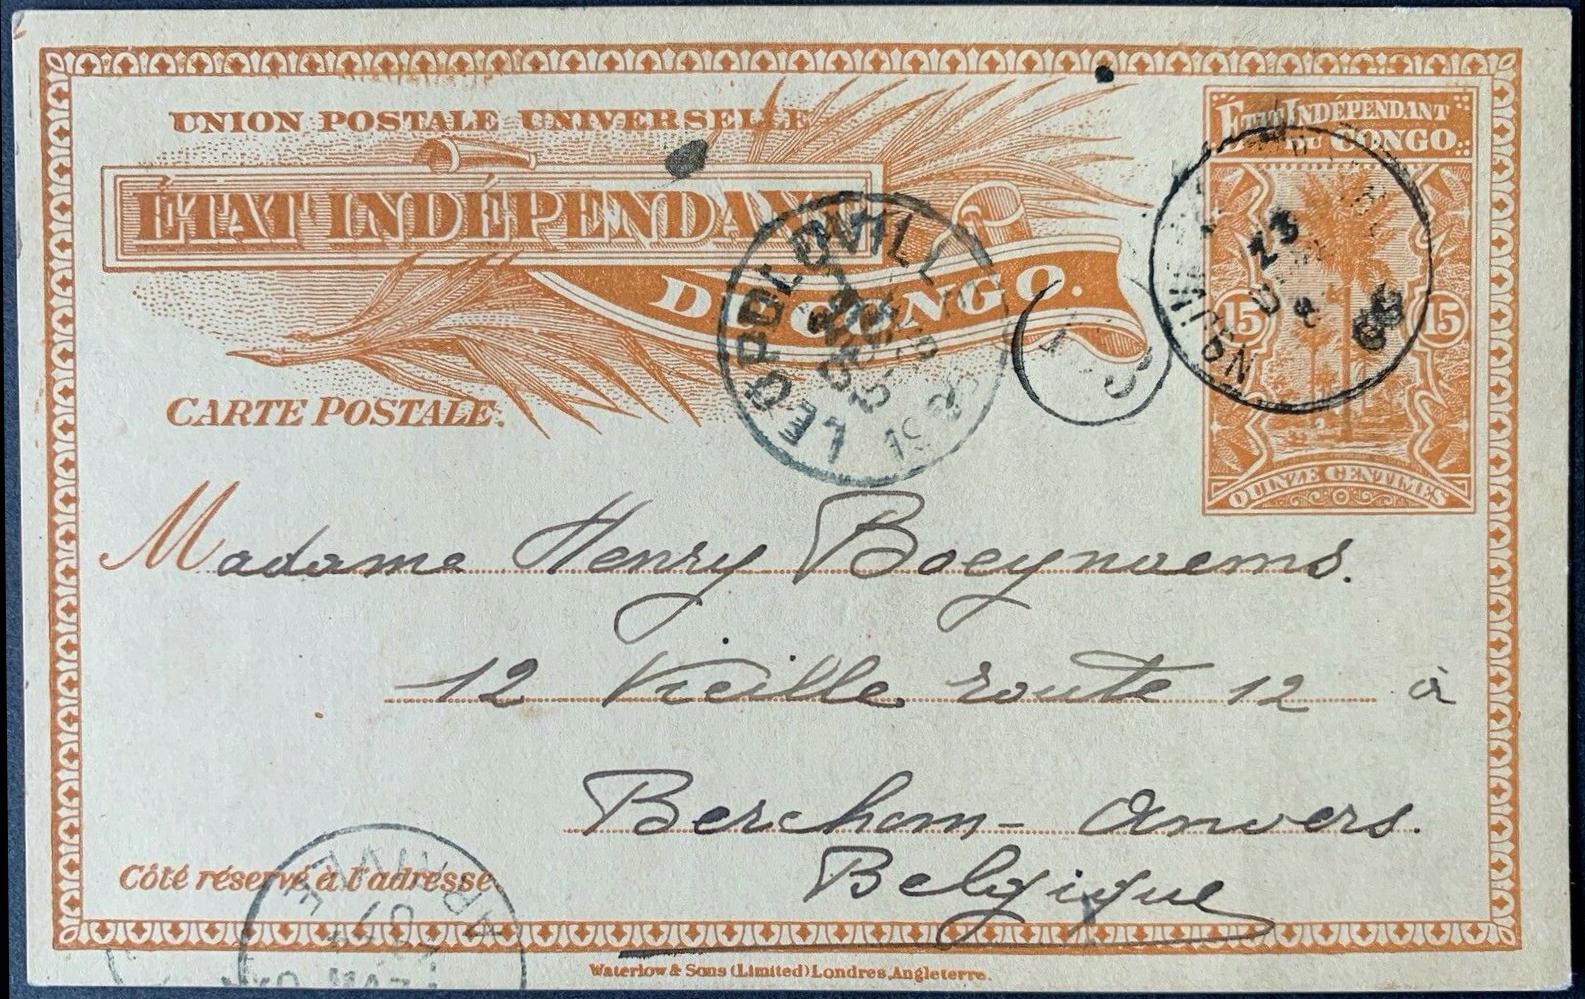 UNION POSTALE UNIVERSELLE
ÉTAT INDÉPENDANT
DU CONGO.
CARTE POSTALE.
ETAT INDÉPENDANT
DU CONGO.
15 15
QUINZE CENTIMES
LEOPOLDVILLE
Madame Henry Boeynaems.
12 Vieille route 12 à
Berchem - Anvers.
Belgique
Côté réservé à l'adresse
ARRIVÉE
Waterlow & Sons (Limited) Londres, Angleterre.